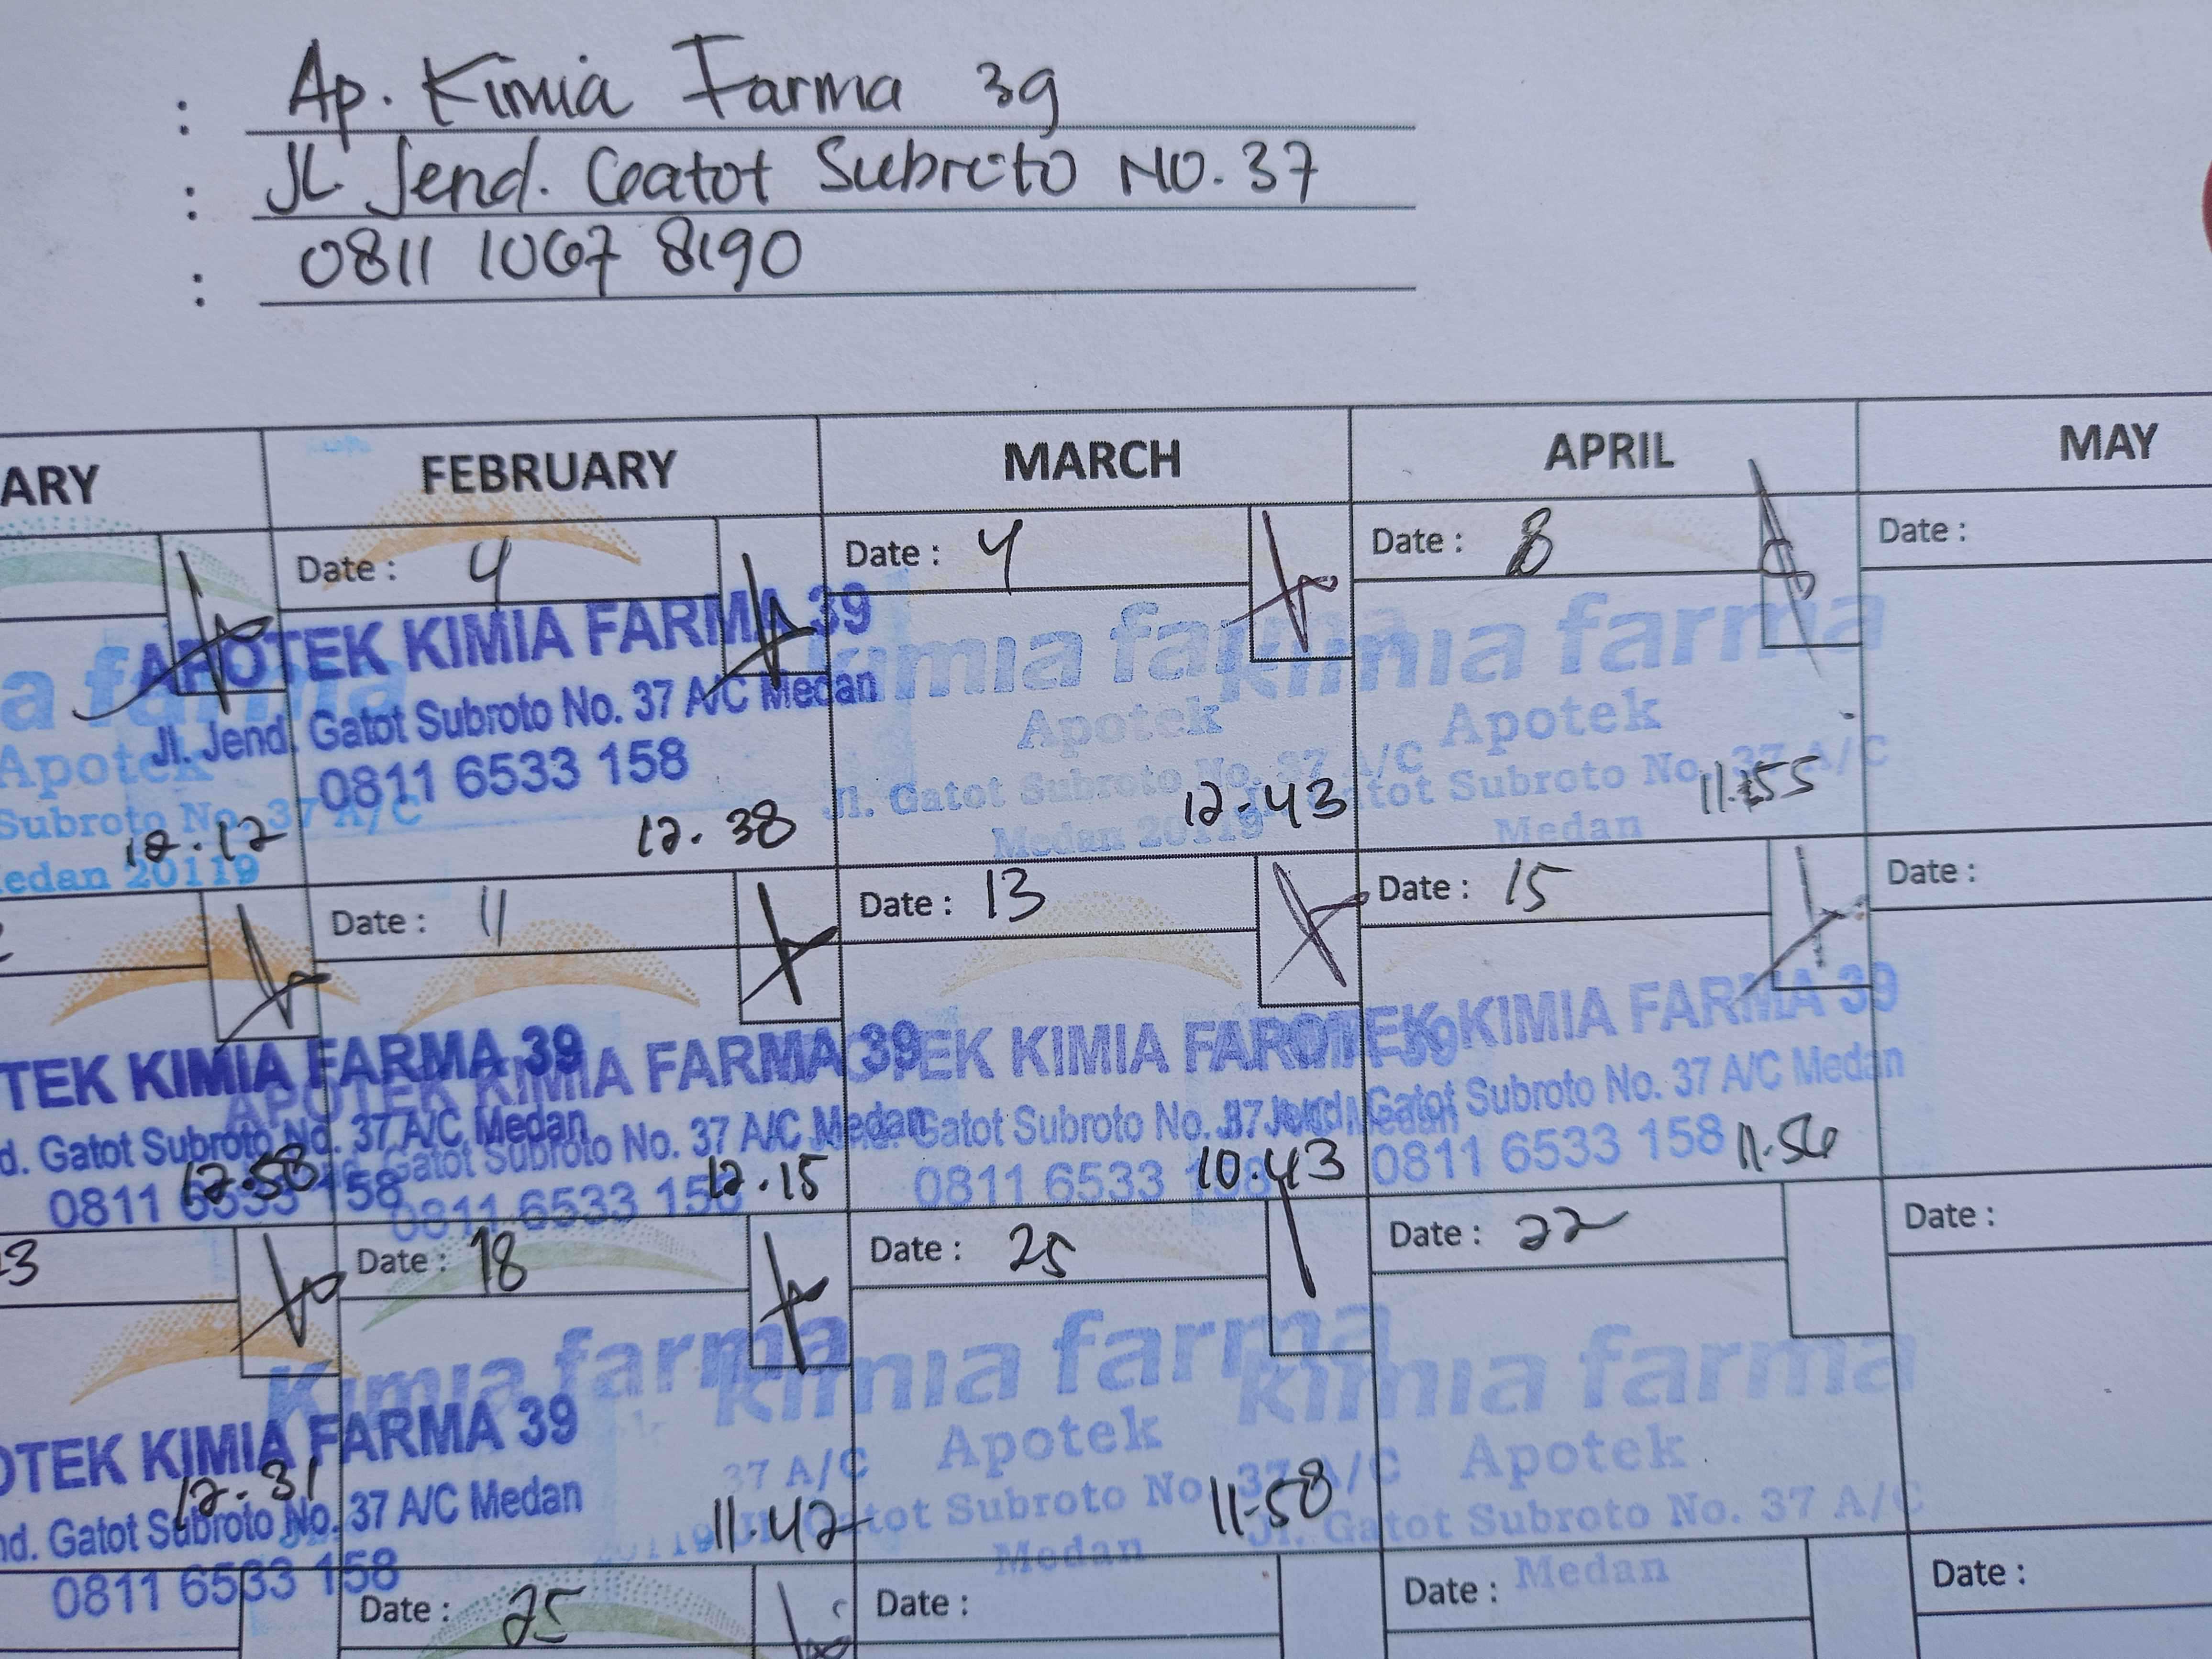 : Ap. Kimia Farma 39
: JL. Jend. Gatot Subroto NO. 37
: 0811 1067 8190
ARY FEBRUARY MARCH APRIL MAY
Date : 4 Date : 4 Date : 8 Date :
a farma APOTEK KIMIA FARMA 39 kimia farma kimia farma
Apotek Jl. Jend. Gatot Subroto No. 37 A/C Medan Apotek Apotek
Subroto No. 37 A/C 0811 6533 158 Jl. Gatot Subroto No. 37 A/C Gatot Subroto No. 37 A/C
edan 20119 Medan 20119 Medan
12.17 12.38 12.43 11.55
Date : 11 Date : 13 Date : 15 Date :
TEK KIMIA FARMA 39 APOTEK KIMIA FARMA 39 TEK KIMIA FARMA 39 KIMIA FARMA 39
d. Gatot Subroto No. 37 A/C Medan Gatot Subroto No. 37 A/C Medan Gatot Subroto No. 37 A/C Medan Jend. Gatot Subroto No. 37 A/C Medan
0811 6533 158 0811 6533 158 0811 6533 158 0811 6533 158
12.58 12.15 10.43 11.56
3 Date : 18 Date : 25 Date : 22 Date :
OTEK KIMIA FARMA 39 kimia farma kimia farma kimia farma
nd. Gatot Subroto No. 37 A/C Medan 37 A/C Apotek Apotek
0811 6533 158 20119 Jl. Gatot Subroto No. 37 A/C Jl. Gatot Subroto No. 37 A/C
Medan Medan
12.31 11.42 11.58
Date : 25 Date : Date : Date :